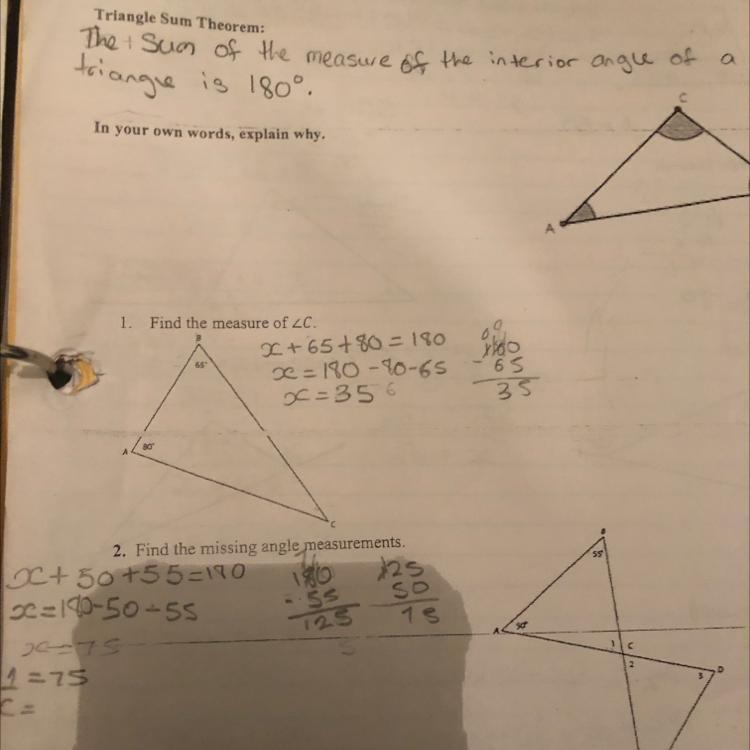 Triangle Sum Theorem:
The sum of the measure of the interior angle of a
triangle is 180°.
In your own words, explain why.
C
A
1. Find the measure of ∠C.
B
65°
A
80°
C
x + 65 + 80 = 180
x = 180 - 80 - 65
x = 35
100
- 65
35
2. Find the missing angle measurements.
x + 50 + 55 = 180
x = 180 - 50 - 55
x = 75
1 = 75
C =
180
- 55
125
125
50
75
B
55°
A
50°
1
C
2
3
D